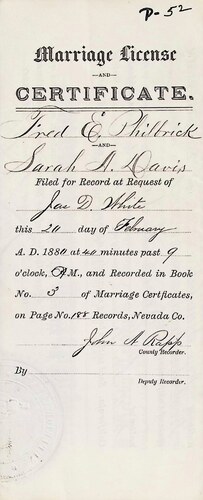 P-52
Marriage License
AND
CERTIFICATE.
Fred E. Philbrick
AND
Sarah A. Davis
Filed for Record at Request of
Jas D. White
this 20 day of February
A. D. 1880 at 40 minutes past 9
o'clock, A.M., and Recorded in Book
No. 3 of Marriage Certficates,
on Page No. 188 Records, Nevada Co.
John A. Rapp
County Recorder.
By
Deputy Recorder.